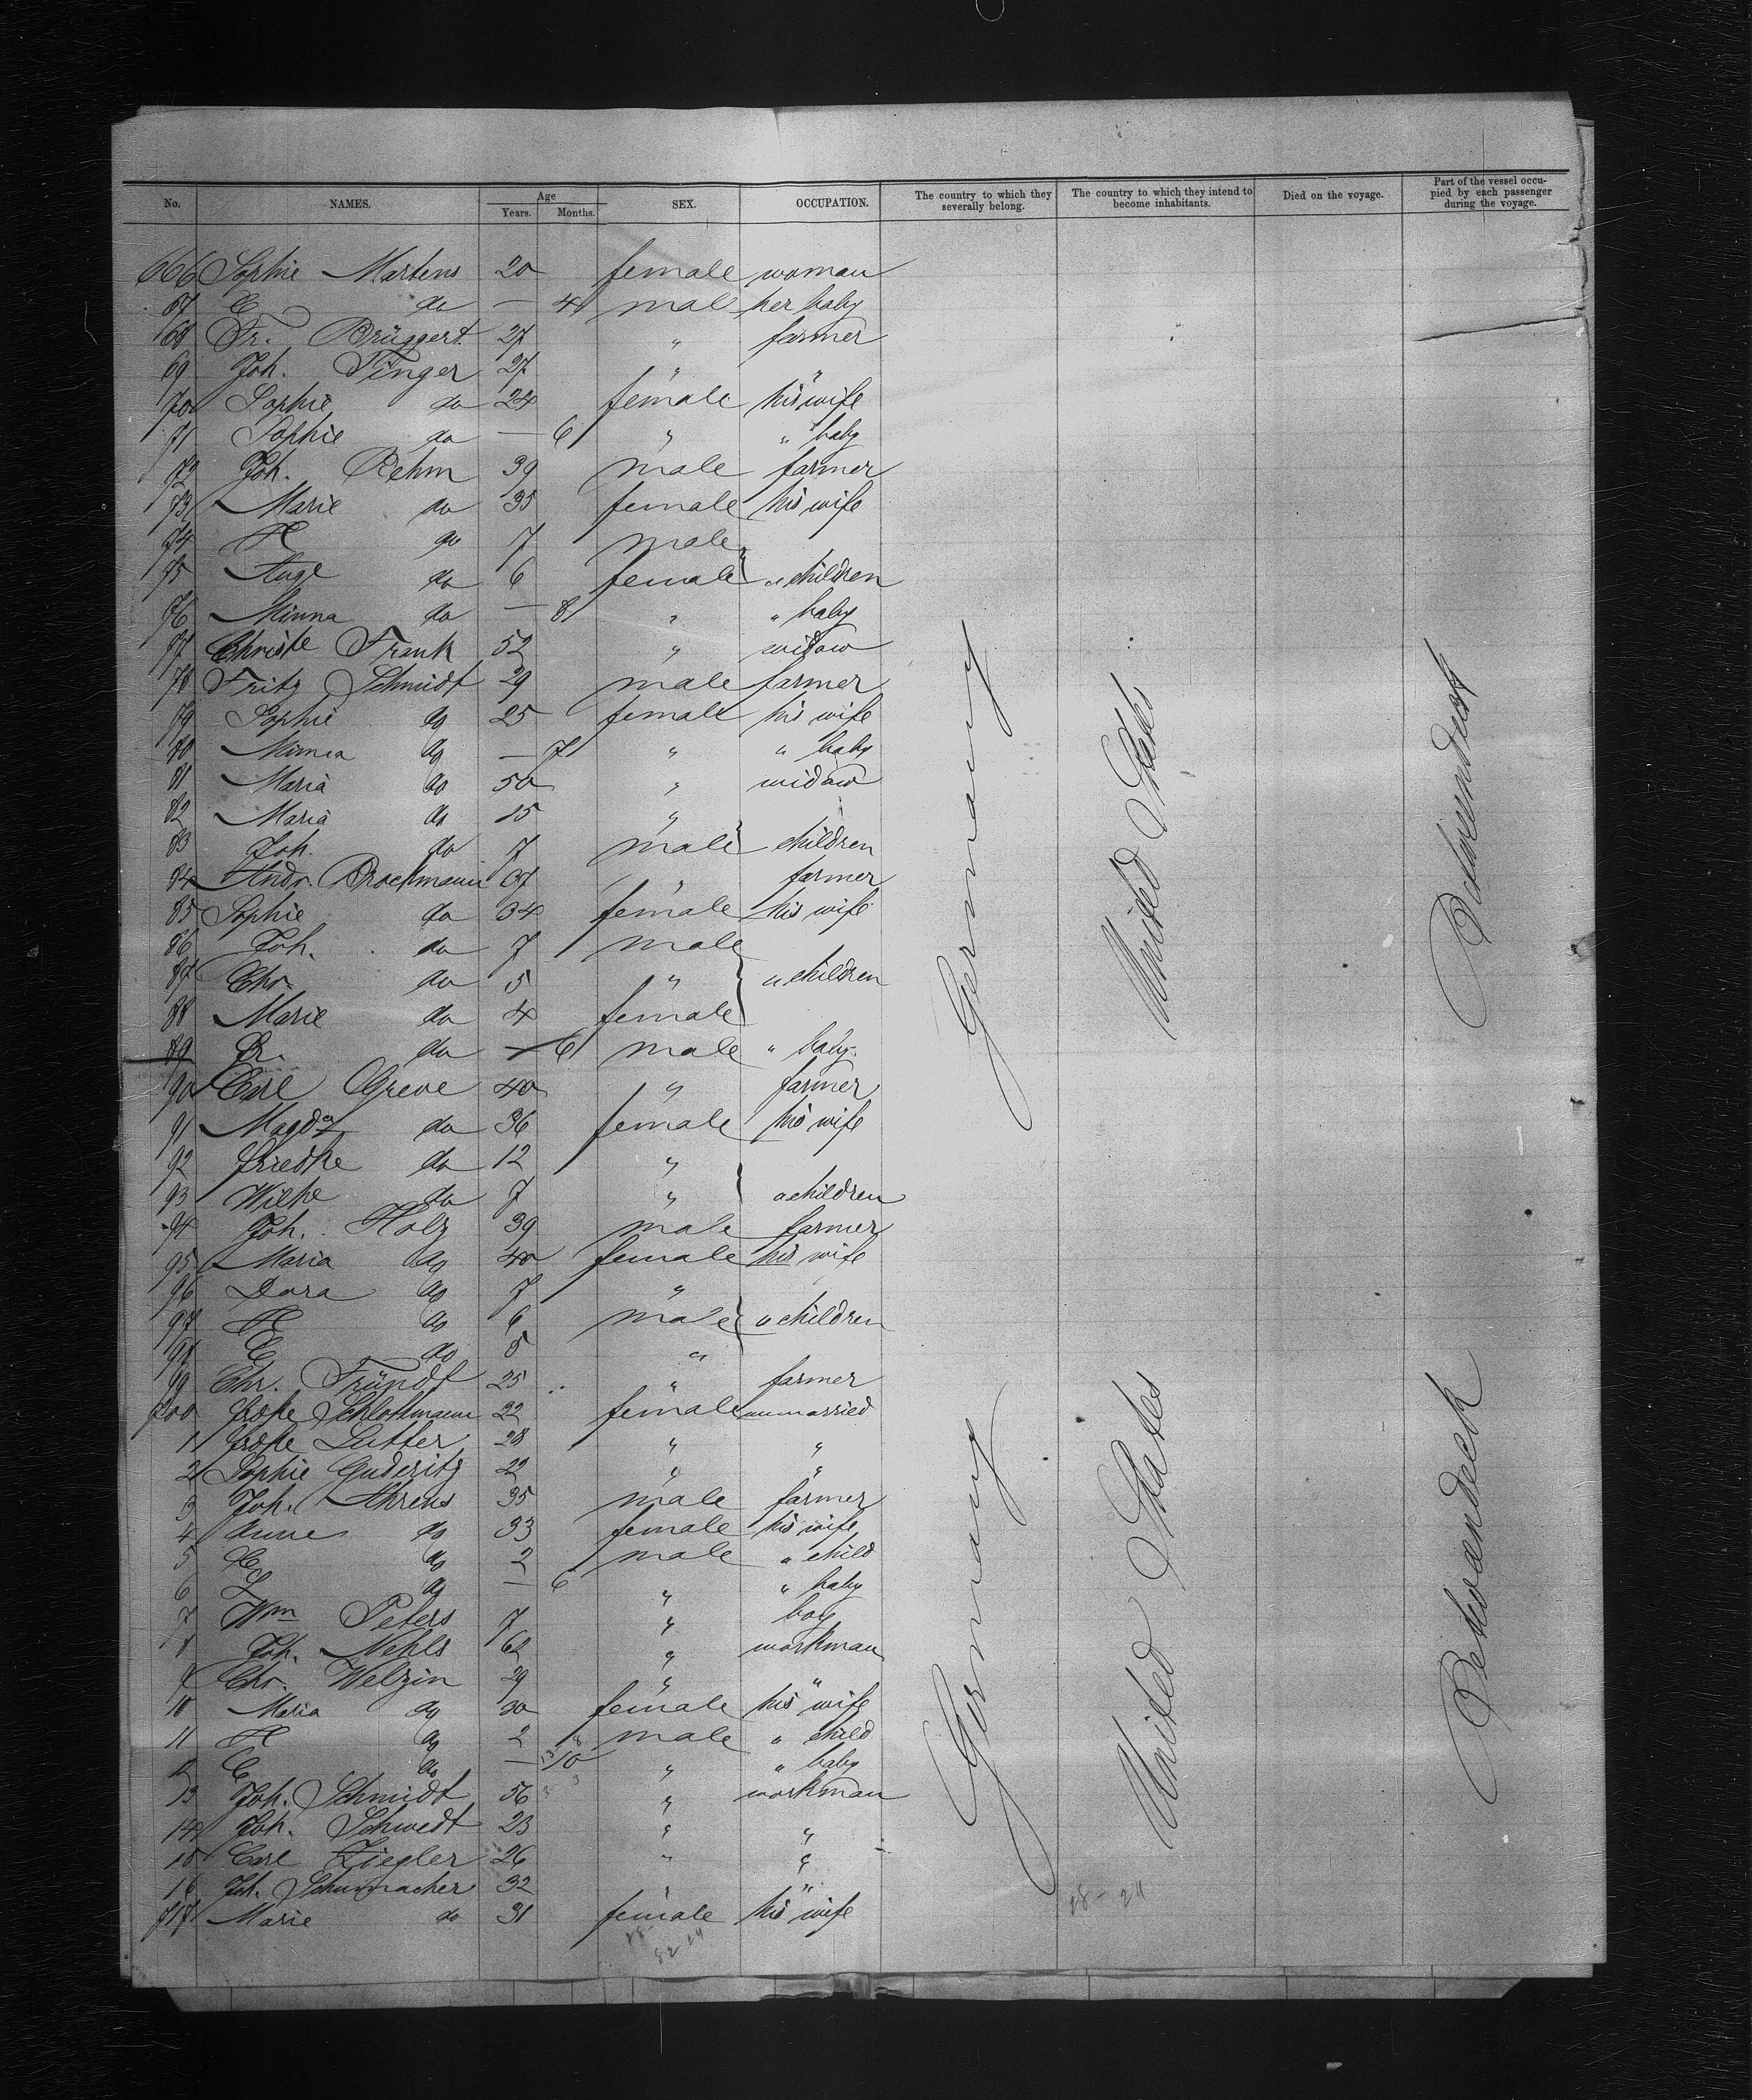 No. NAMES. Age Years. Months. SEX. OCCUPATION. The country to which they severally belong. The country to which they intend to become inhabitants. Died on the voyage. Part of the vessel occupied by each passenger during the voyage.
666 Sophie Martens 20 female woman
67 C do — 4 mal her baby
68 Fr. Brüggert 27 " farmer
69 Joh. Finger 27 " "
70 Sophie do 24 female his wife
71 Sophie do — 6 " " baby
72 Joh. Rehm 39 male farmer
73 Marie do 35 female his wife
74 H do 7 male
75 Auge do 6 female " children
76 Minna do — 8 " " baby
77 Christe Frank 52 " widow
78 Fritz Schmidt 29 male farmer
79 Sophie do 25 female his wife
80 Minna do — 7 " " baby
81 Maria do 50 " widow
82 Maria do 15 "
83 Joh. do 7 male children
84 Andr. Brockmann 37 " farmer
85 Sophie do 34 female his wife
86 Joh. do 7 male
87 Chr. do 5 " " children
88 Marie do 4 female
89 Fr. do — 6 male " baby
90 Carl Greve 40 " farmer
91 Magda do 36 female his wife
92 Friedke do 12 "
93 Wilhe do 7 " " children
94 Joh. Holz 39 male farmer
95 Maria do 40 female his wife
96 Dora do 7 "
97 H do 6 male " children
98 C do 5 "
99 Chr. Fründt 25 " farmer
700 Schlottmann 22 female unmarried
1 Lutter 28 " "
2 Sophie Guderitz 22 " "
3 Joh. Ahrens 35 male farmer
4 Anne do 33 female his wife
5 C do 2 male " child
6 L do — 6 " " baby
7 Wm Peters 7 " boy
8 Joh. Nehls 62 " workman
9 Chr. Welzin 29 " "
10 Maria do 30 female his wife
11 H do 2 male " child
12 C do — 10 " " baby
13 Joh. Schmidt 56 " workman
14 Joh. Schwedt 23 " "
15 Carl Ziegler 26 " "
16 Joh. Schumacher 32 " "
717 Marie do 31 female his wife
Germany
United States
Betweendeck
Germany
United States
Betweendeck
28 - 24
82 24